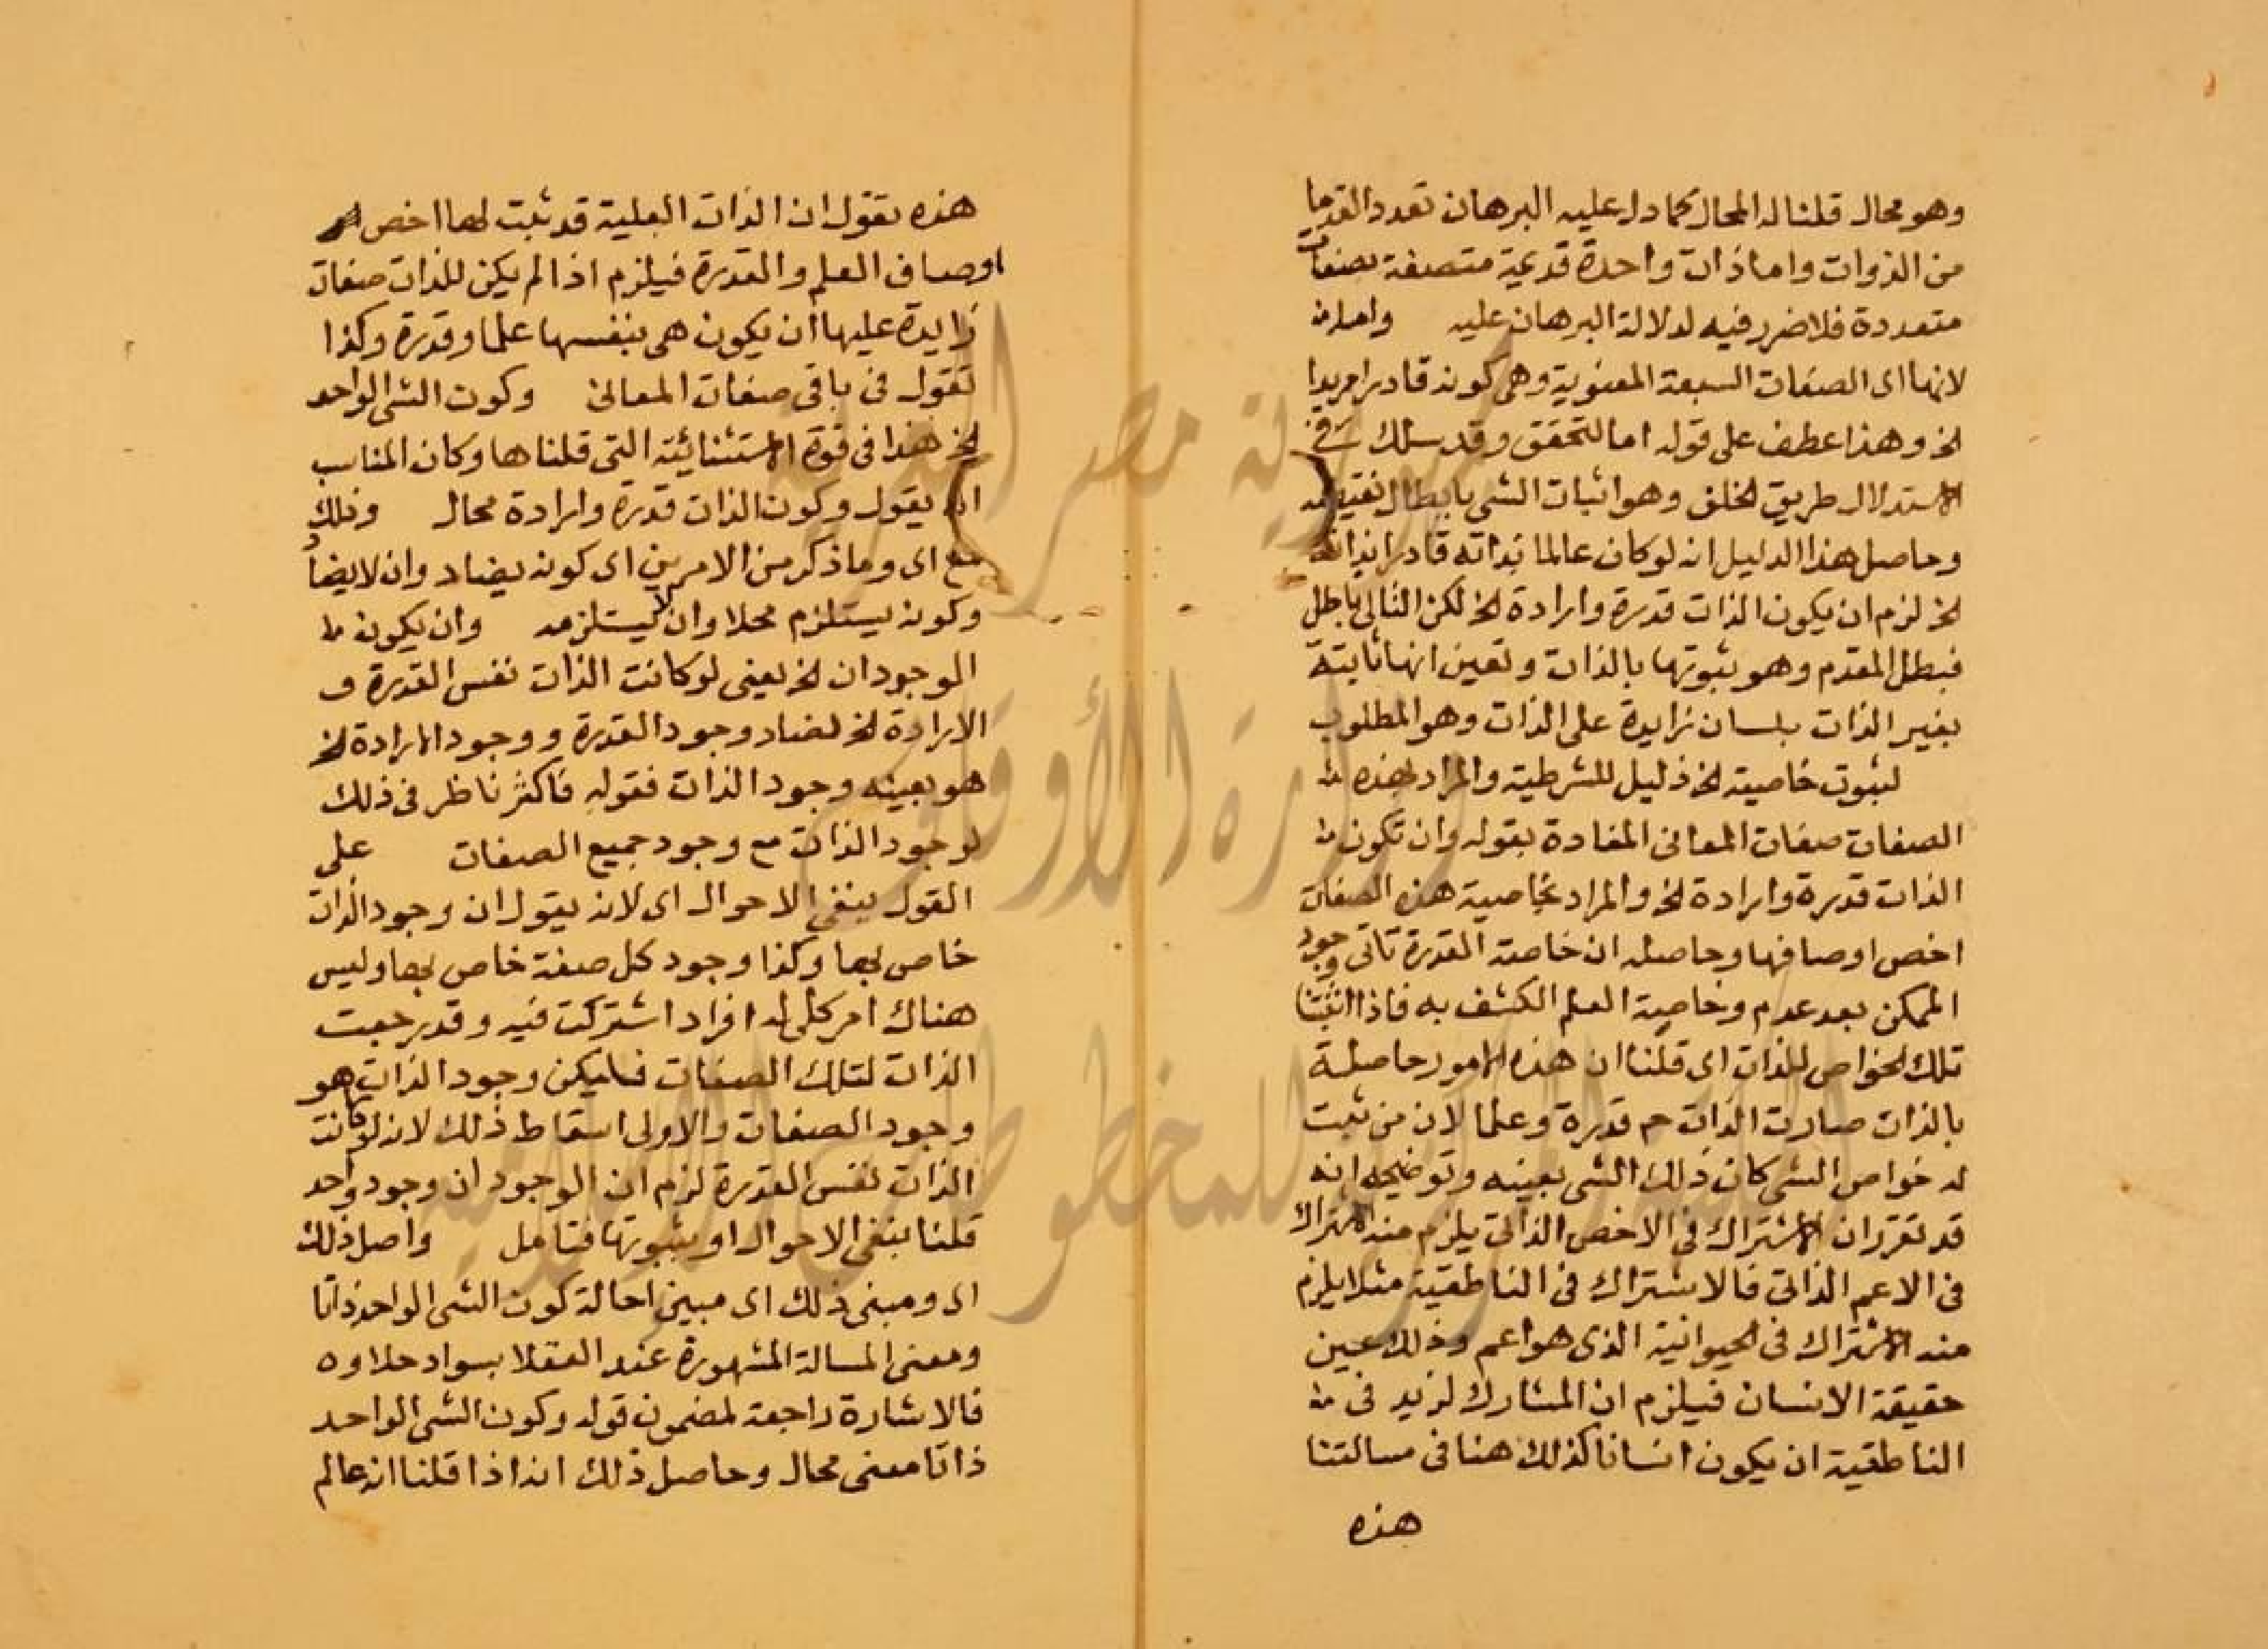 وهو محال قلنا له المحال كما دل عليه البرهان تعدد القدما
من الذوات واما ذات واحدة قديمة متصفة بصفات
متعددة فلا ضرر فيه لدلالة البرهان عليه
لانها اى الصفات السبعة المعنوية وهى كونه قادرا مريدا
الخ وهذا عطف على قوله اما لتحقق وقد سلك في
الاستدلال طريق الخلف وهو اثبات الشى بابطال نقيضه
وحاصل هذا الدليل انه لو كان عالما بذاته قادرا بذاته
الخ لزم ان يكون الذات قدرة وارادة الخ لكن التالى باطل
فبطل المقدم وهو ثبوتها بالذات وتعين انها ثابتة
بغير الذات بلسان زايدة على الذات وهو المطلوب
لثبوت خاصية الخ دليل للشرطية والمراد بهذه
الصفات صفات المعانى المفادة بقوله وان تكون
الذات قدرة وارادة الخ والمراد بخاصية هذه الصفات
اخص اوصافها وحاصله ان خاصة القدرة تاتى وجود
الممكن بعد عدم وخاصية العلم الكشف به فاذا اثبتنا
تلك الخواص للذات اى قلنا ان هذه الامور حاصلة
بالذات صارت الذات ح قدرة وعلما لان من ثبت
له خواص الشى كان ذلك الشى بعينه وتوضيحه انه
قد تقرر ان الاشتراك في الاخص الذاتى يلزم منه الاشتراك
فى الاعم الذاتى فالاشتراك فى الناطقية مثلا يلزم
منه الاشتراك فى الحيوانية الذى هو اعم وذلك عين
حقيقة الانسان فيلزم ان المشارك لزيد فى
الناطقية ان يكون انسانا كذلك هنا فى مسالتنا
هذه
هذه نقول ان الذات العلية قد ثبت لها اخص
اوصاف العلم والقدرة فيلزم اذا لم يكن للذات صفات
زايدة عليها ان يكون هى بنفسها علما وقدرة وكذا
تقول فى باقى صفات المعانى وكون الشى الواحد
الخ هذا فى قوة الاستثنائية التى قلناها وكان المناسب
ان يقول وكون الذات قدرة وارادة محال وذلك
مع اى وما ذكر من الامرين اى كونه يضاد وان لا يضاد
وكونه يستلزم محلا وان لا يستلزمه وان يكون
الموجودان الخ يعنى لو كانت الذات نفس القدرة و
الارادة الخ لضاد وجود القدرة ووجود الارادة الخ
هو بعينه وجود الذات فقوله فاكثر ناظر فى ذلك
لوجود الذات مع وجود جميع الصفات على
القول بنفى الاحوال اى لانه يقول ان وجود الذات
خاص بها وكذا وجود كل صفة خاص بها وليس
هناك امر كلى له افراد اشتركت فيه وقد رجعت
الذات لتلك الصفات فليكن وجود الذات هو
وجود الصفات والاولى اسقاط ذلك لانه لو كانت
الذات نفس القدرة لزم ان الوجودان وجود واحد
قلنا بنفى الاحوال او بثبوتها فتامل واصل ذلك
اى ومبنى ذلك اى مبنى احالة كون الشى الواحد ذاتا
ومعنى المسالة المشهورة عند العقلا بسواد حلاوه
فالاشارة راجعة لمضمون قوله وكون الشى الواحد
ذاتا معنى محال وحاصل ذلك انه اذا قلنا انه عالم